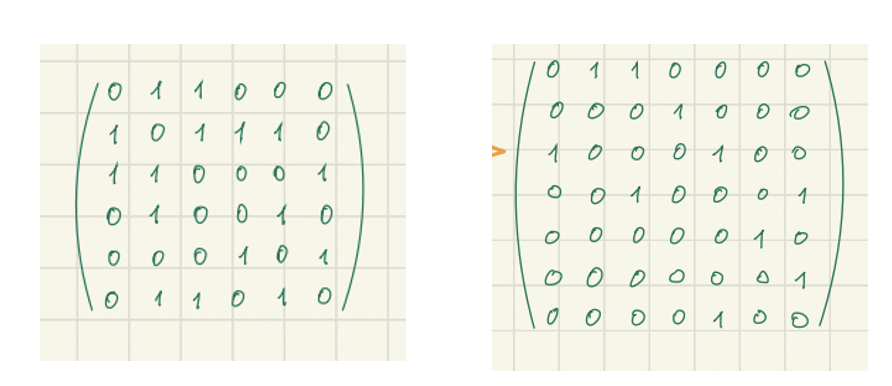 0 1 1 0 0 0
1 0 1 1 1 0
1 1 0 0 0 1
0 1 0 0 1 0
0 0 0 1 0 1
0 1 1 0 1 0
0 1 1 0 0 0 0
0 0 0 1 0 0 0
1 0 0 0 1 0 0
0 0 1 0 0 0 1
0 0 0 0 0 1 0
0 0 0 0 0 0 1
0 0 0 0 1 0 0